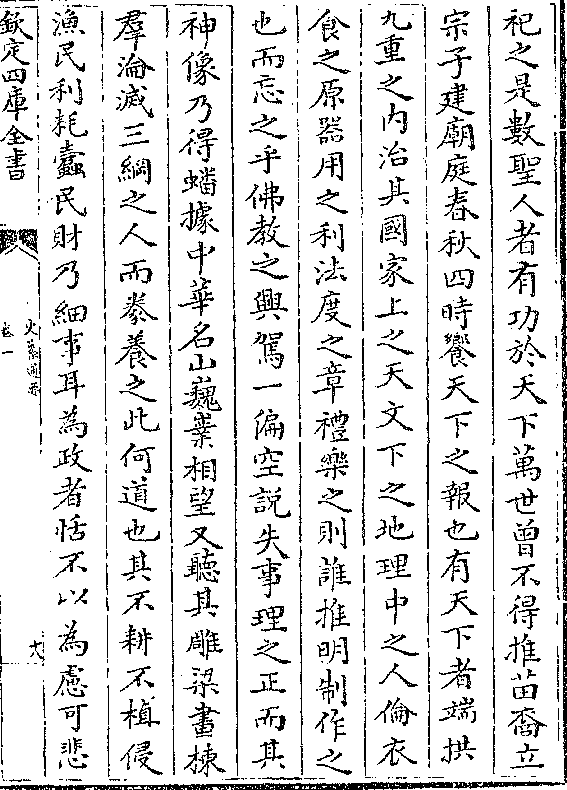 祀之是數聖人者有功於天下萬世曾不得推苗裔立
宗子建廟庭春秋四時饗天下之報也有天下者端拱
九重之內治其國家上之天文下之地理中之人倫衣
食之原器用之利法度之章禮樂之則誰推明制作之
也而忘之乎佛教之興駕一偏空說失事理之正而其
神像乃得蟠據中華名山巍業相望又聽其雕梁畫棟
羣淪滅三綱之人而豢養之此何道也其不耕不植侵
漁民利耗蠹民財乃細事耳為政者恬不以為慮可悲
欽定四庫全書
卷一